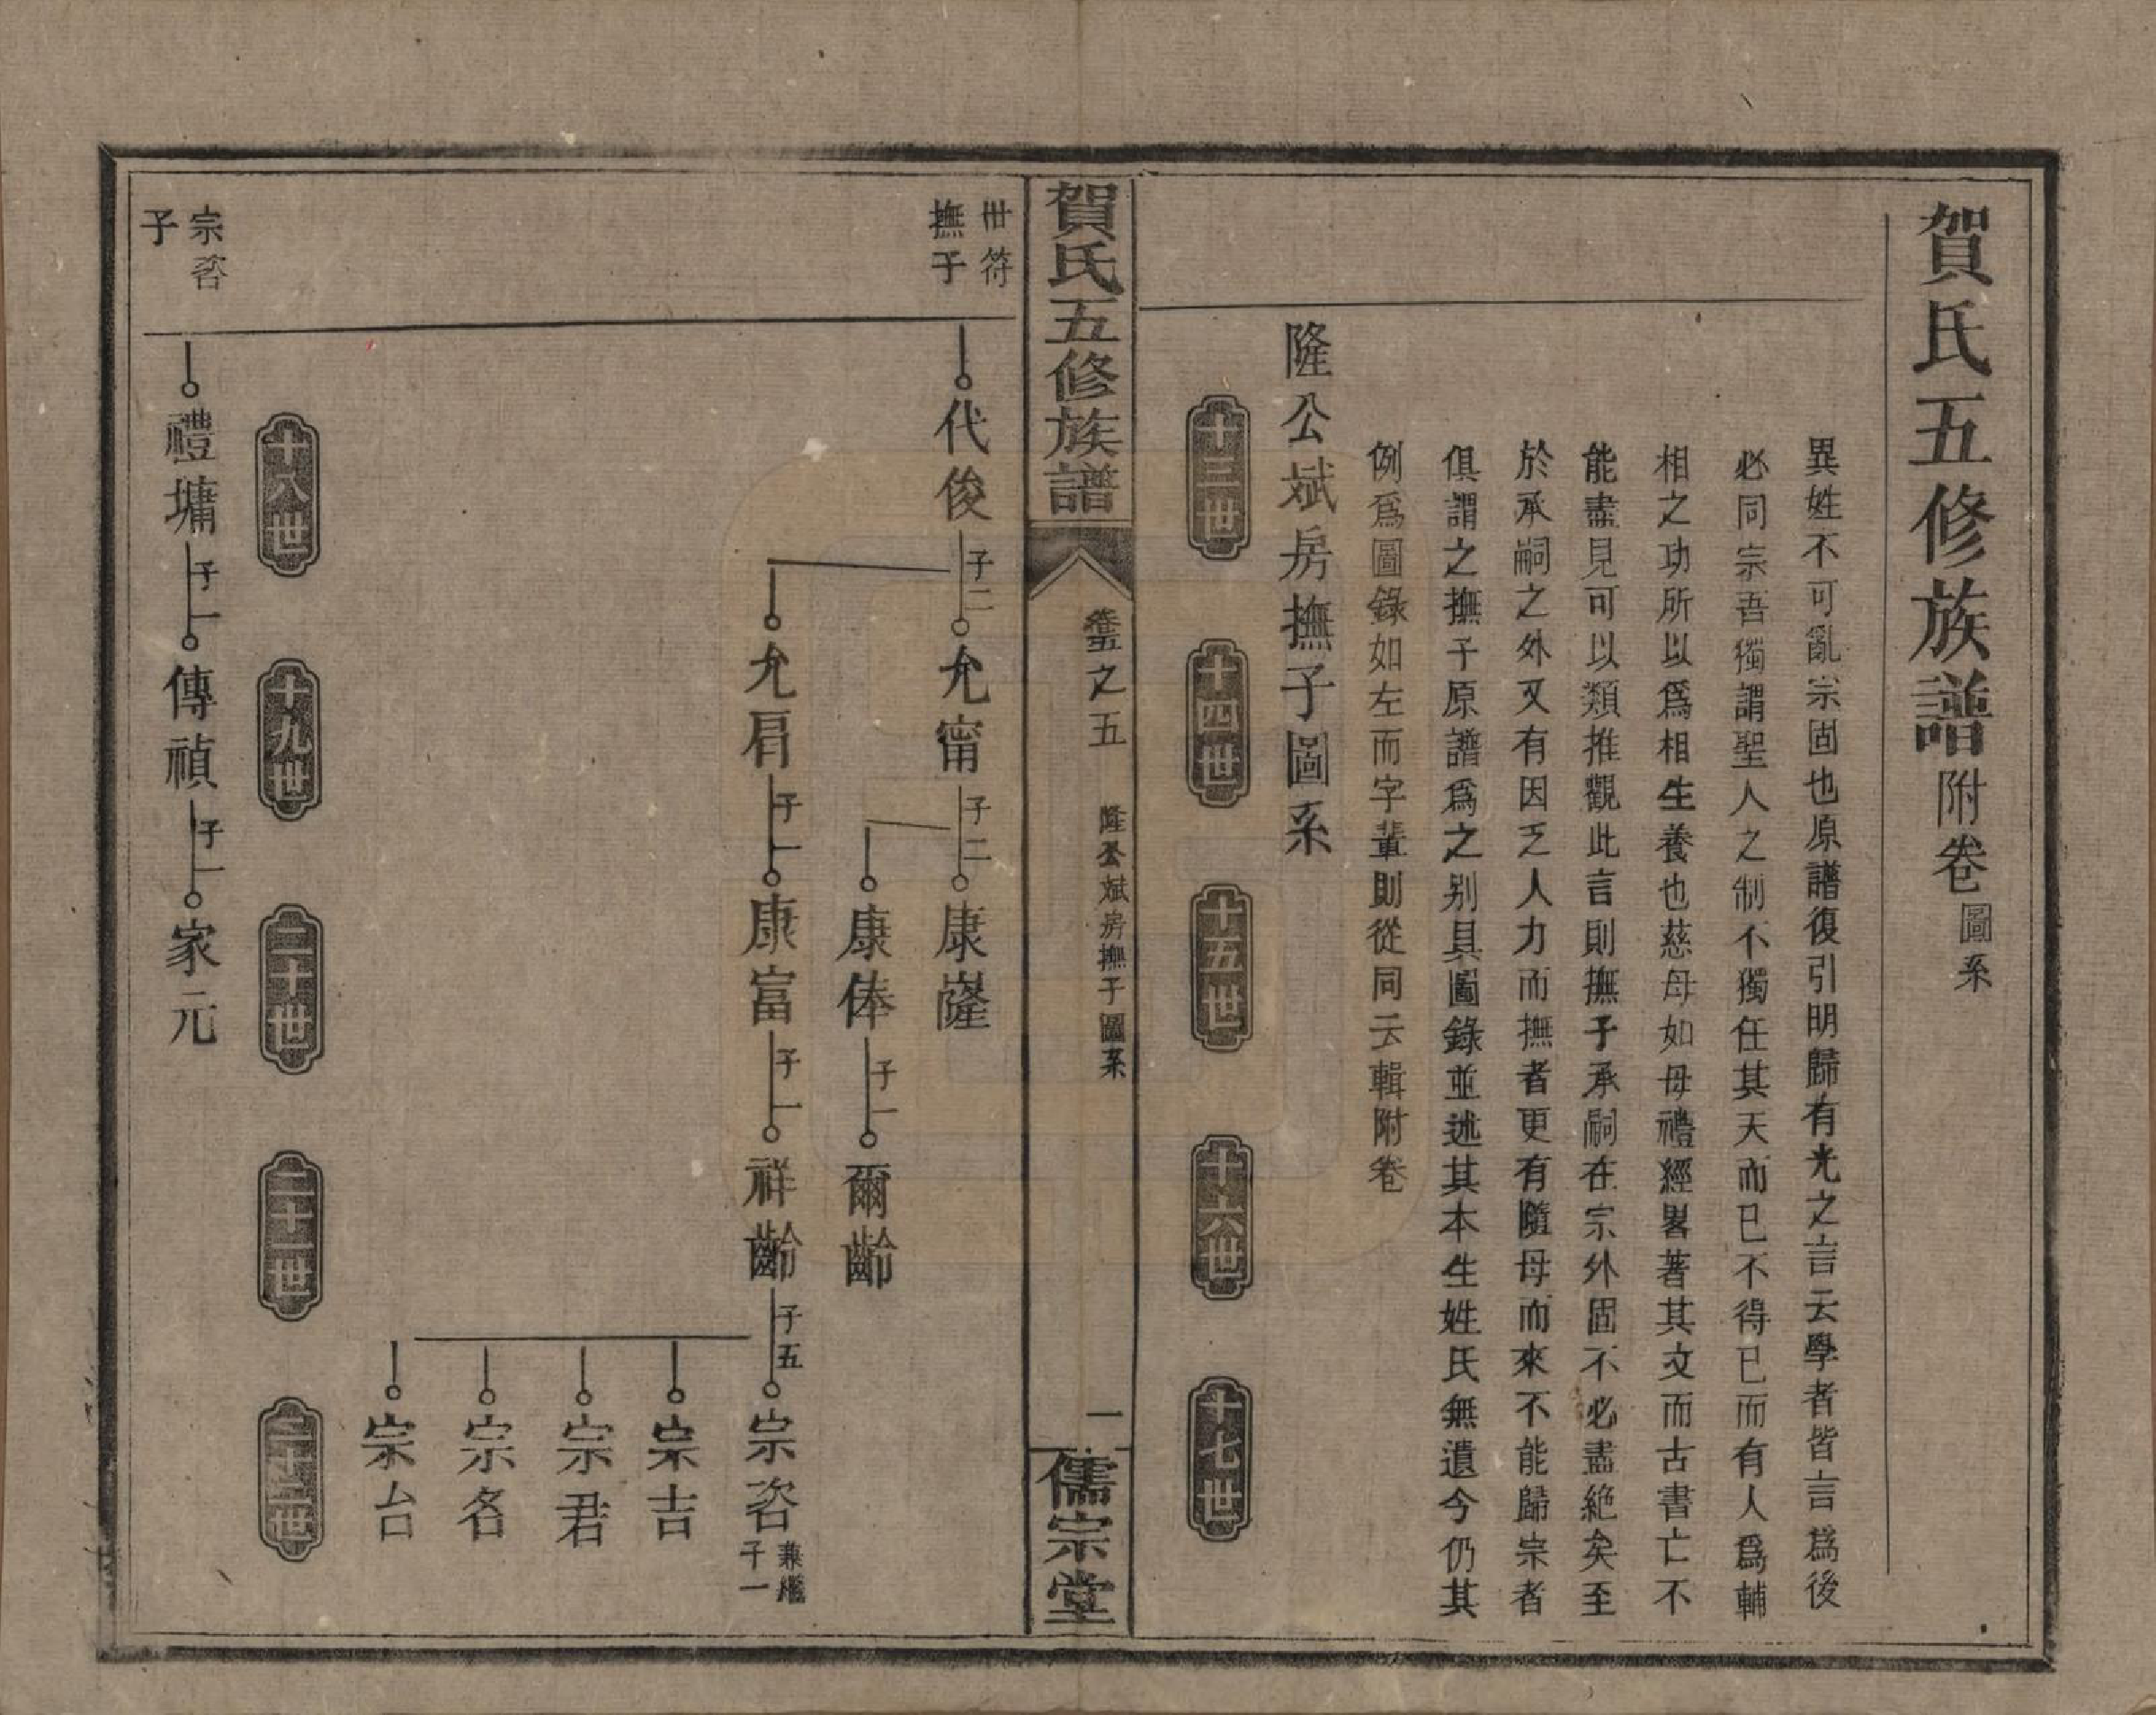 賀氏五修族譜附卷圖系
異姓不可亂宗固也原譜復引明歸有光之言云學者皆言爲後
必同宗吾獨謂聖人之制不獨任其天而已不得已而有人爲輔
相之功所以爲相生養也慈母如母禮經畧著其文而古書亡不
能盡見可以類推觀此言則撫子承嗣在宗外固不必盡絶矣至
於承嗣之外又有因乏人力而撫者更有隨母而來不能歸宗者
俱謂之撫子原譜爲之别具圖錄並述其本生姓氏無遺今仍其
例爲圖錄如左而字輩則從同云輯附卷
隆公斌房撫子圖系
十三世
十四世
十五世
十六世
十七世
賀氏五修族譜
卷五之五
隆公斌房撫子圖系
一
儒宗堂
世符
撫子
代俊
子二
允甯
子二
康嶐
康俸
子一
爾齡
允肩
子一
康富
子一
祥齡
子五
宗咨
兼繼
子一
宗吉
宗君
宗名
宗台
十八世
十九世
二十世
二十一世
二十二世
宗咨
子
禮墉
子一
傳禎
子一
家元